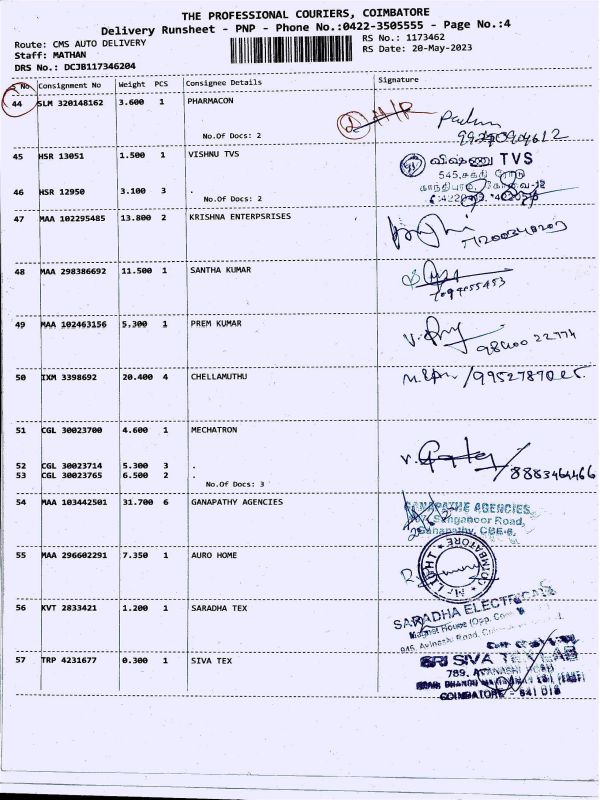 THE PROFESSIONAL COURIERS, COIMBATORE
Delivery Runsheet - PNP - Phone No.:0422-3505555 - Page No.:4
Route: CMS AUTO DELIVERY
RS No.: 1173462
Staff: MATHAN
RS Date: 20-May-2023
DRS No.: DCJB117346204
S No Consignment No Weight PCS Consignee Details Signature
44 SLM 320148162 3.600 1 PHARMACON
No.Of Docs: 2
45 HSR 13051 1.500 1 VISHNU TVS
விஷ்ணு TVS
545, சக்தி ரோடு
46 HSR 12950 3.100 3 .
No.Of Docs: 2
47 MAA 102295485 13.800 2 KRISHNA ENTERPSRISES
48 MAA 298386692 11.500 1 SANTHA KUMAR
49 MAA 102463156 5.300 1 PREM KUMAR
98400 22774
50 IXM 3398692 20.400 4 CHELLAMUTHU
51 CGL 30023700 4.600 1 MECHATRON
52 CGL 30023714 5.300 3 .
53 CGL 30023765 6.500 2 .
8883464466
No.Of Docs: 3
54 MAA 103442501 31.700 6 GANAPATHY AGENCIES
GANAPATHE AGENCIES
Sanganoor Road,
Ganapathy, CBE-6.
55 MAA 296602291 7.350 1 AURO HOME
COIMBATORE
56 KVT 2833421 1.200 1 SARADHA TEX
SARADHA ELECTRICALS
Magnet House (Opp.
945, Avinashi Road,
57 TRP 4231677 0.300 1 SIVA TEX
SRI SIVA TEX
789, AVANASHI ROAD
COIMBATORE - 641 018